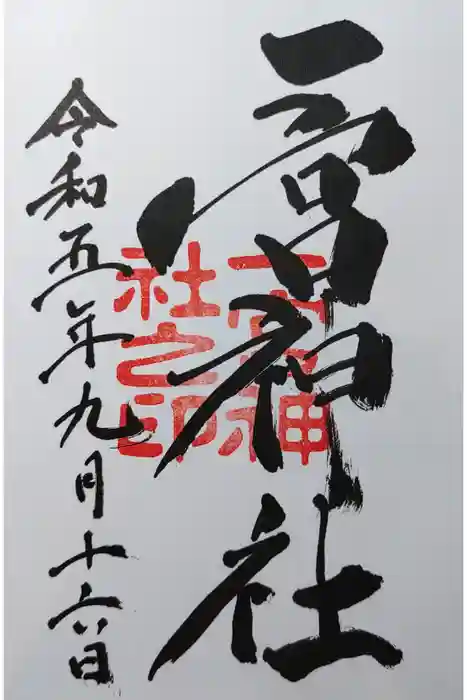 一宮神社
令和五年九月十六日
一宮神社之印